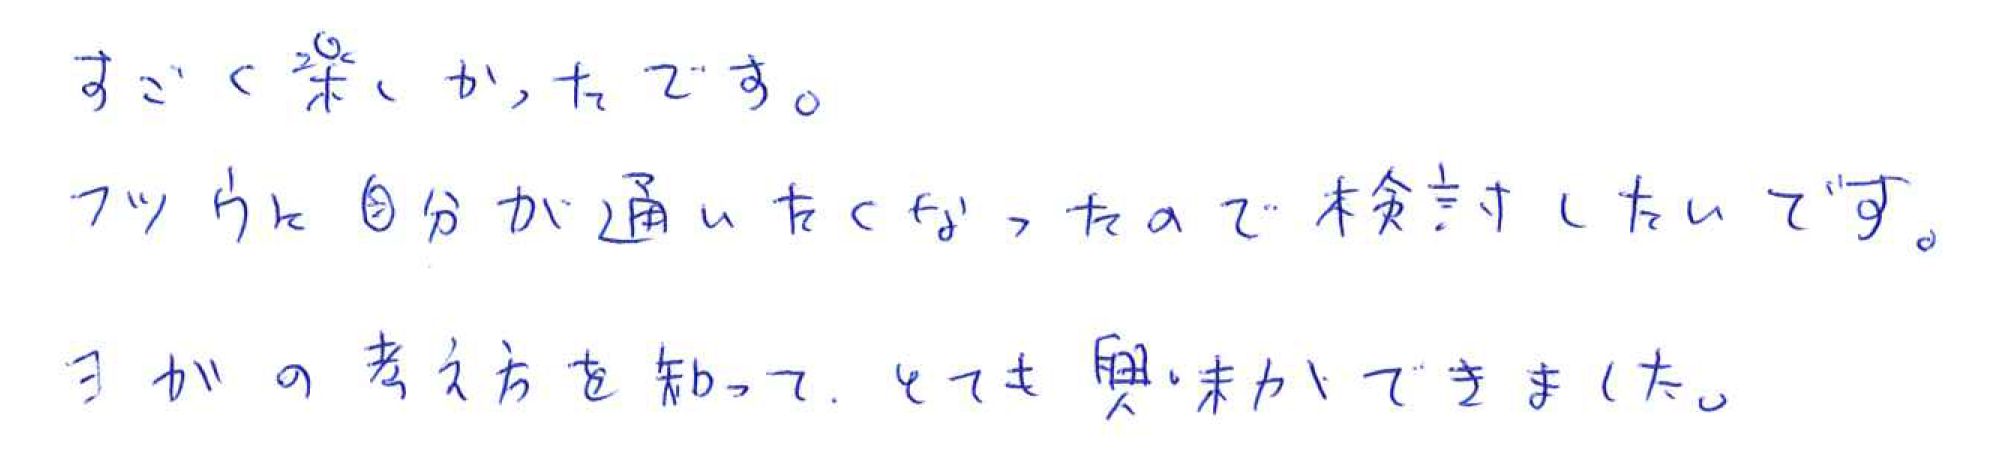 すごく楽しかったです。
フツウに自分が通いたくなったので検討したいです。
ヨガの考え方を知って、とても興味ができました。